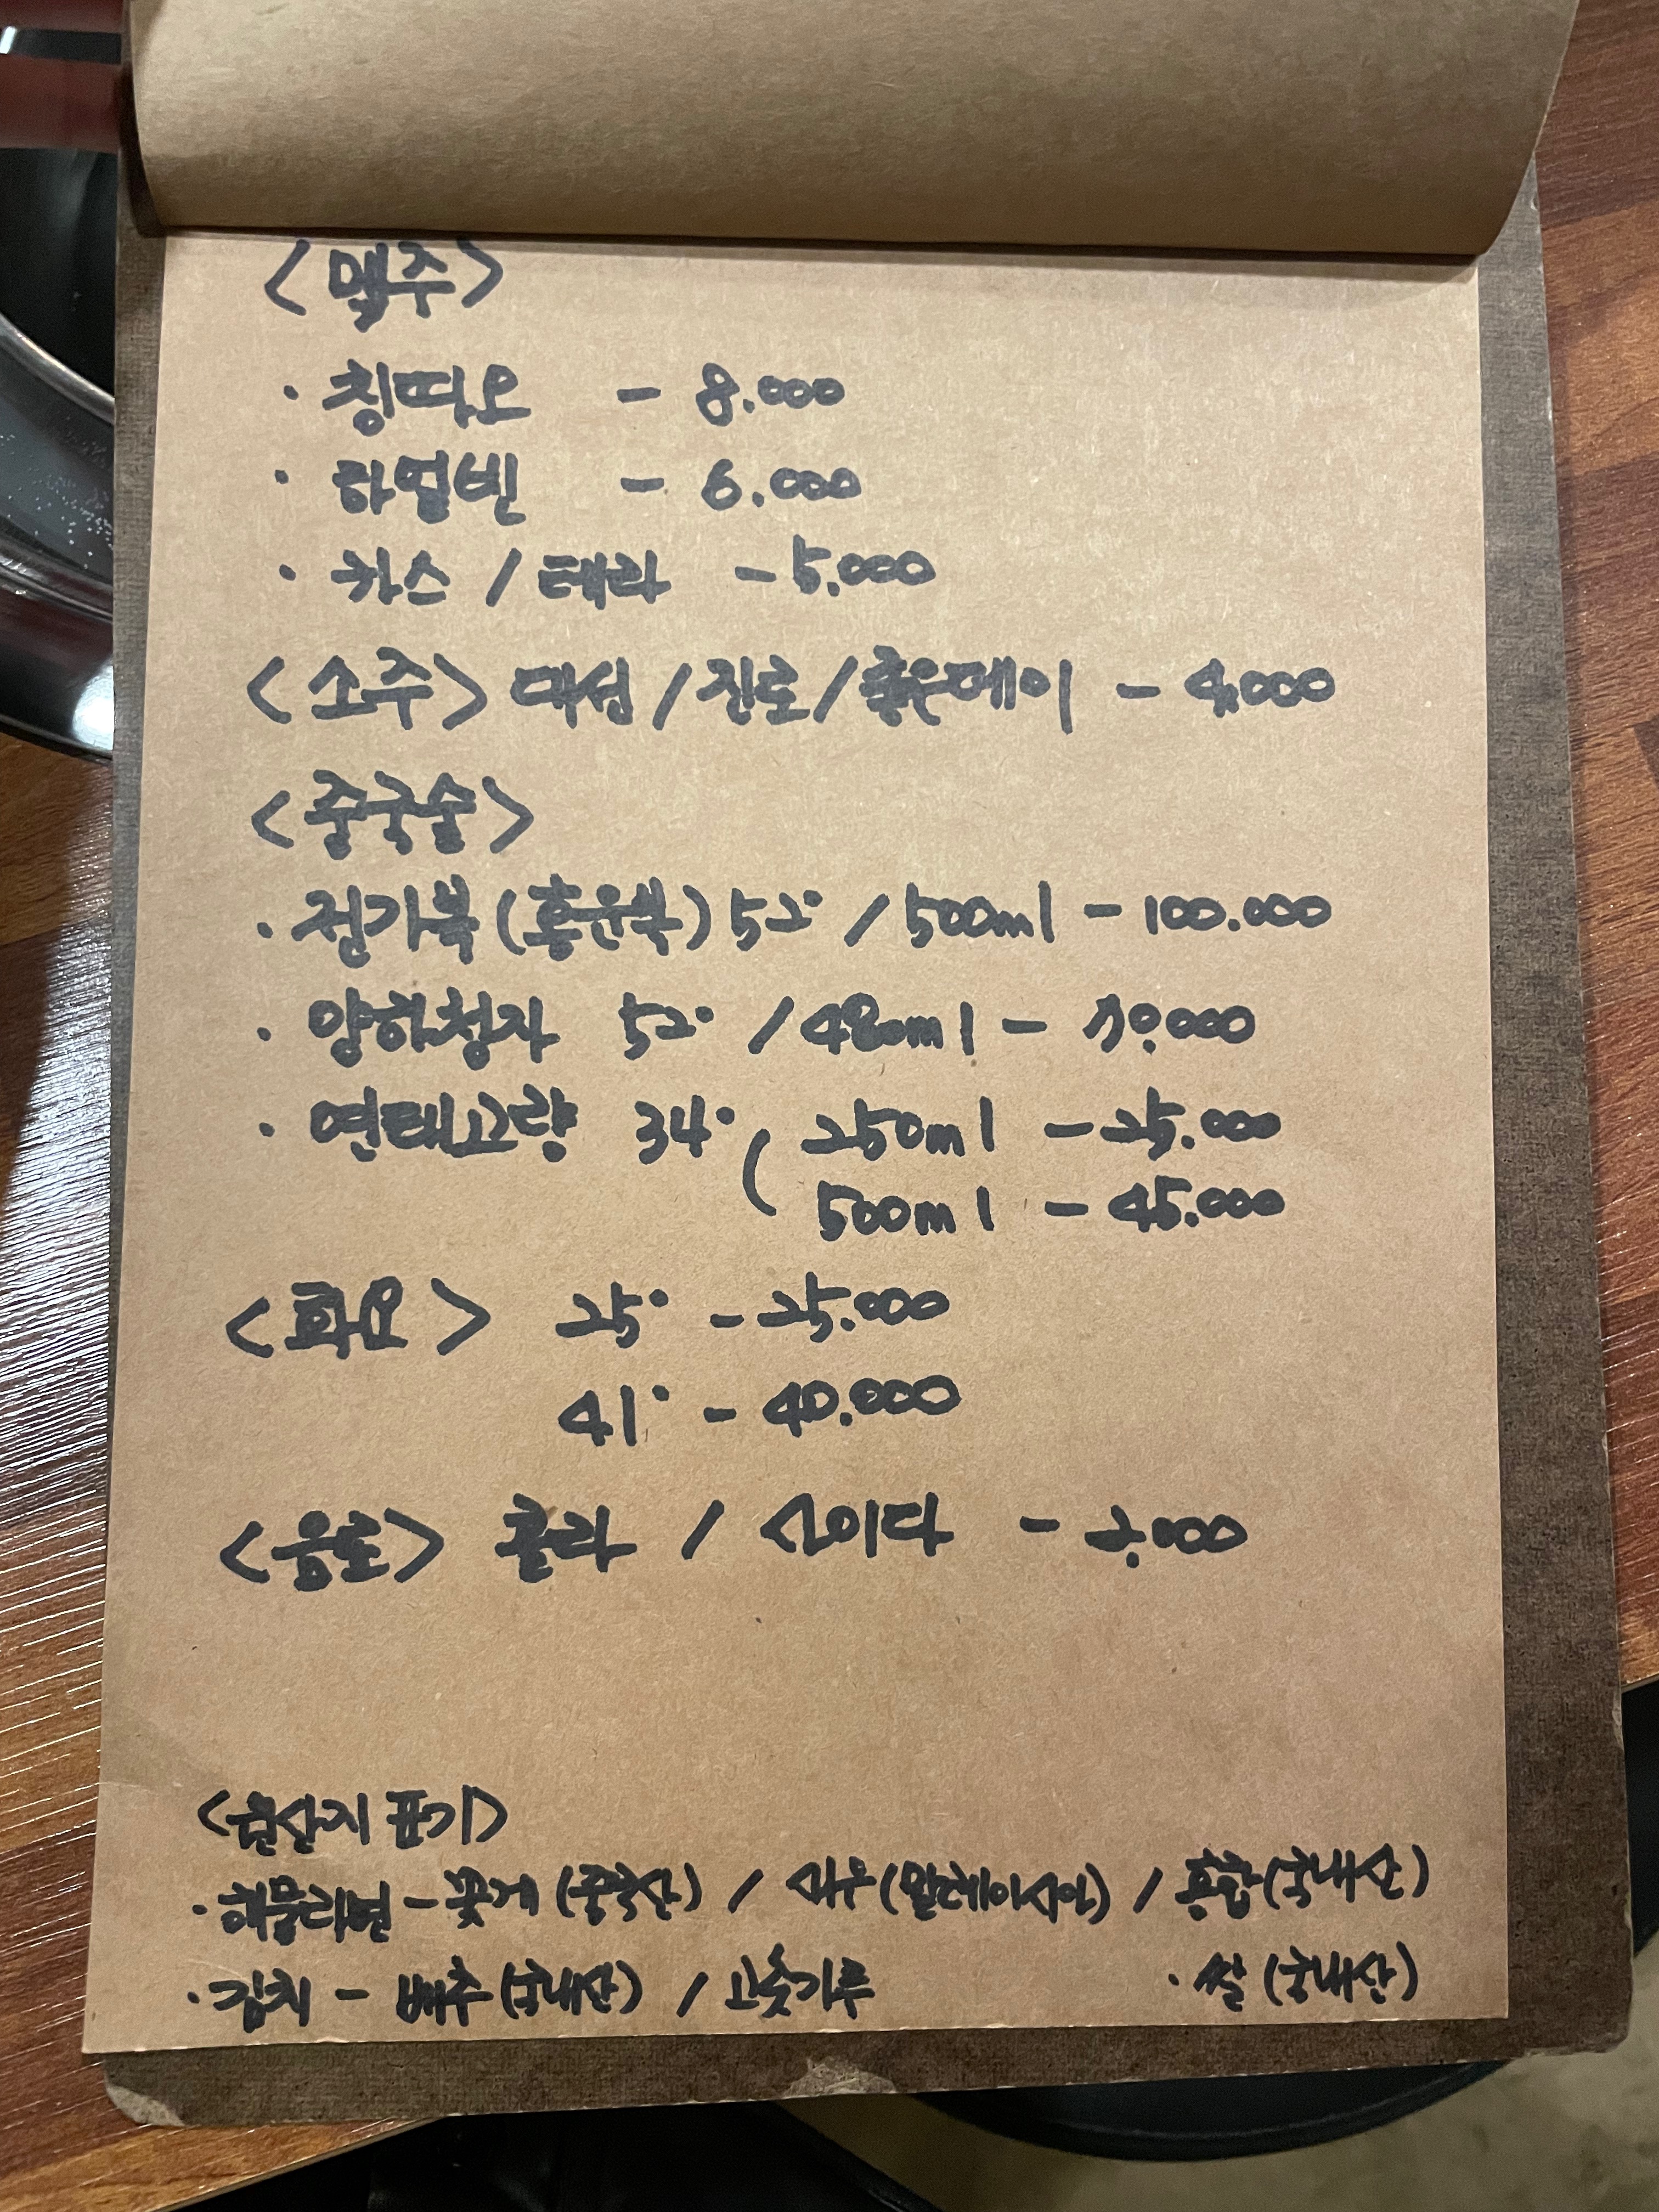 <맥주>
· 칭따오 - 8.000
· 하얼빈 - 6.000
· 카스 / 테라 - 5.000
<소주> 대선 / 진로 / 좋은데이 - 4.000
<중국술>
· 전가복 (홍운북) 52° / 500ml - 100.000
· 양하청자 52° / 480ml - 70.000
· 연태고량 34° ( 250ml - 25.000
500ml - 45.000
<화요> 25° - 25.000
41° - 40.000
<음료> 콜라 / 사이다 - 2.000
<원산지 표기>
· 해물라면 - 꽃게 (중국산) / 새우 (말레이시아) / 홍합 (국내산)
· 김치 - 배추 (국내산) / 고춧가루 · 쌀 (국내산)